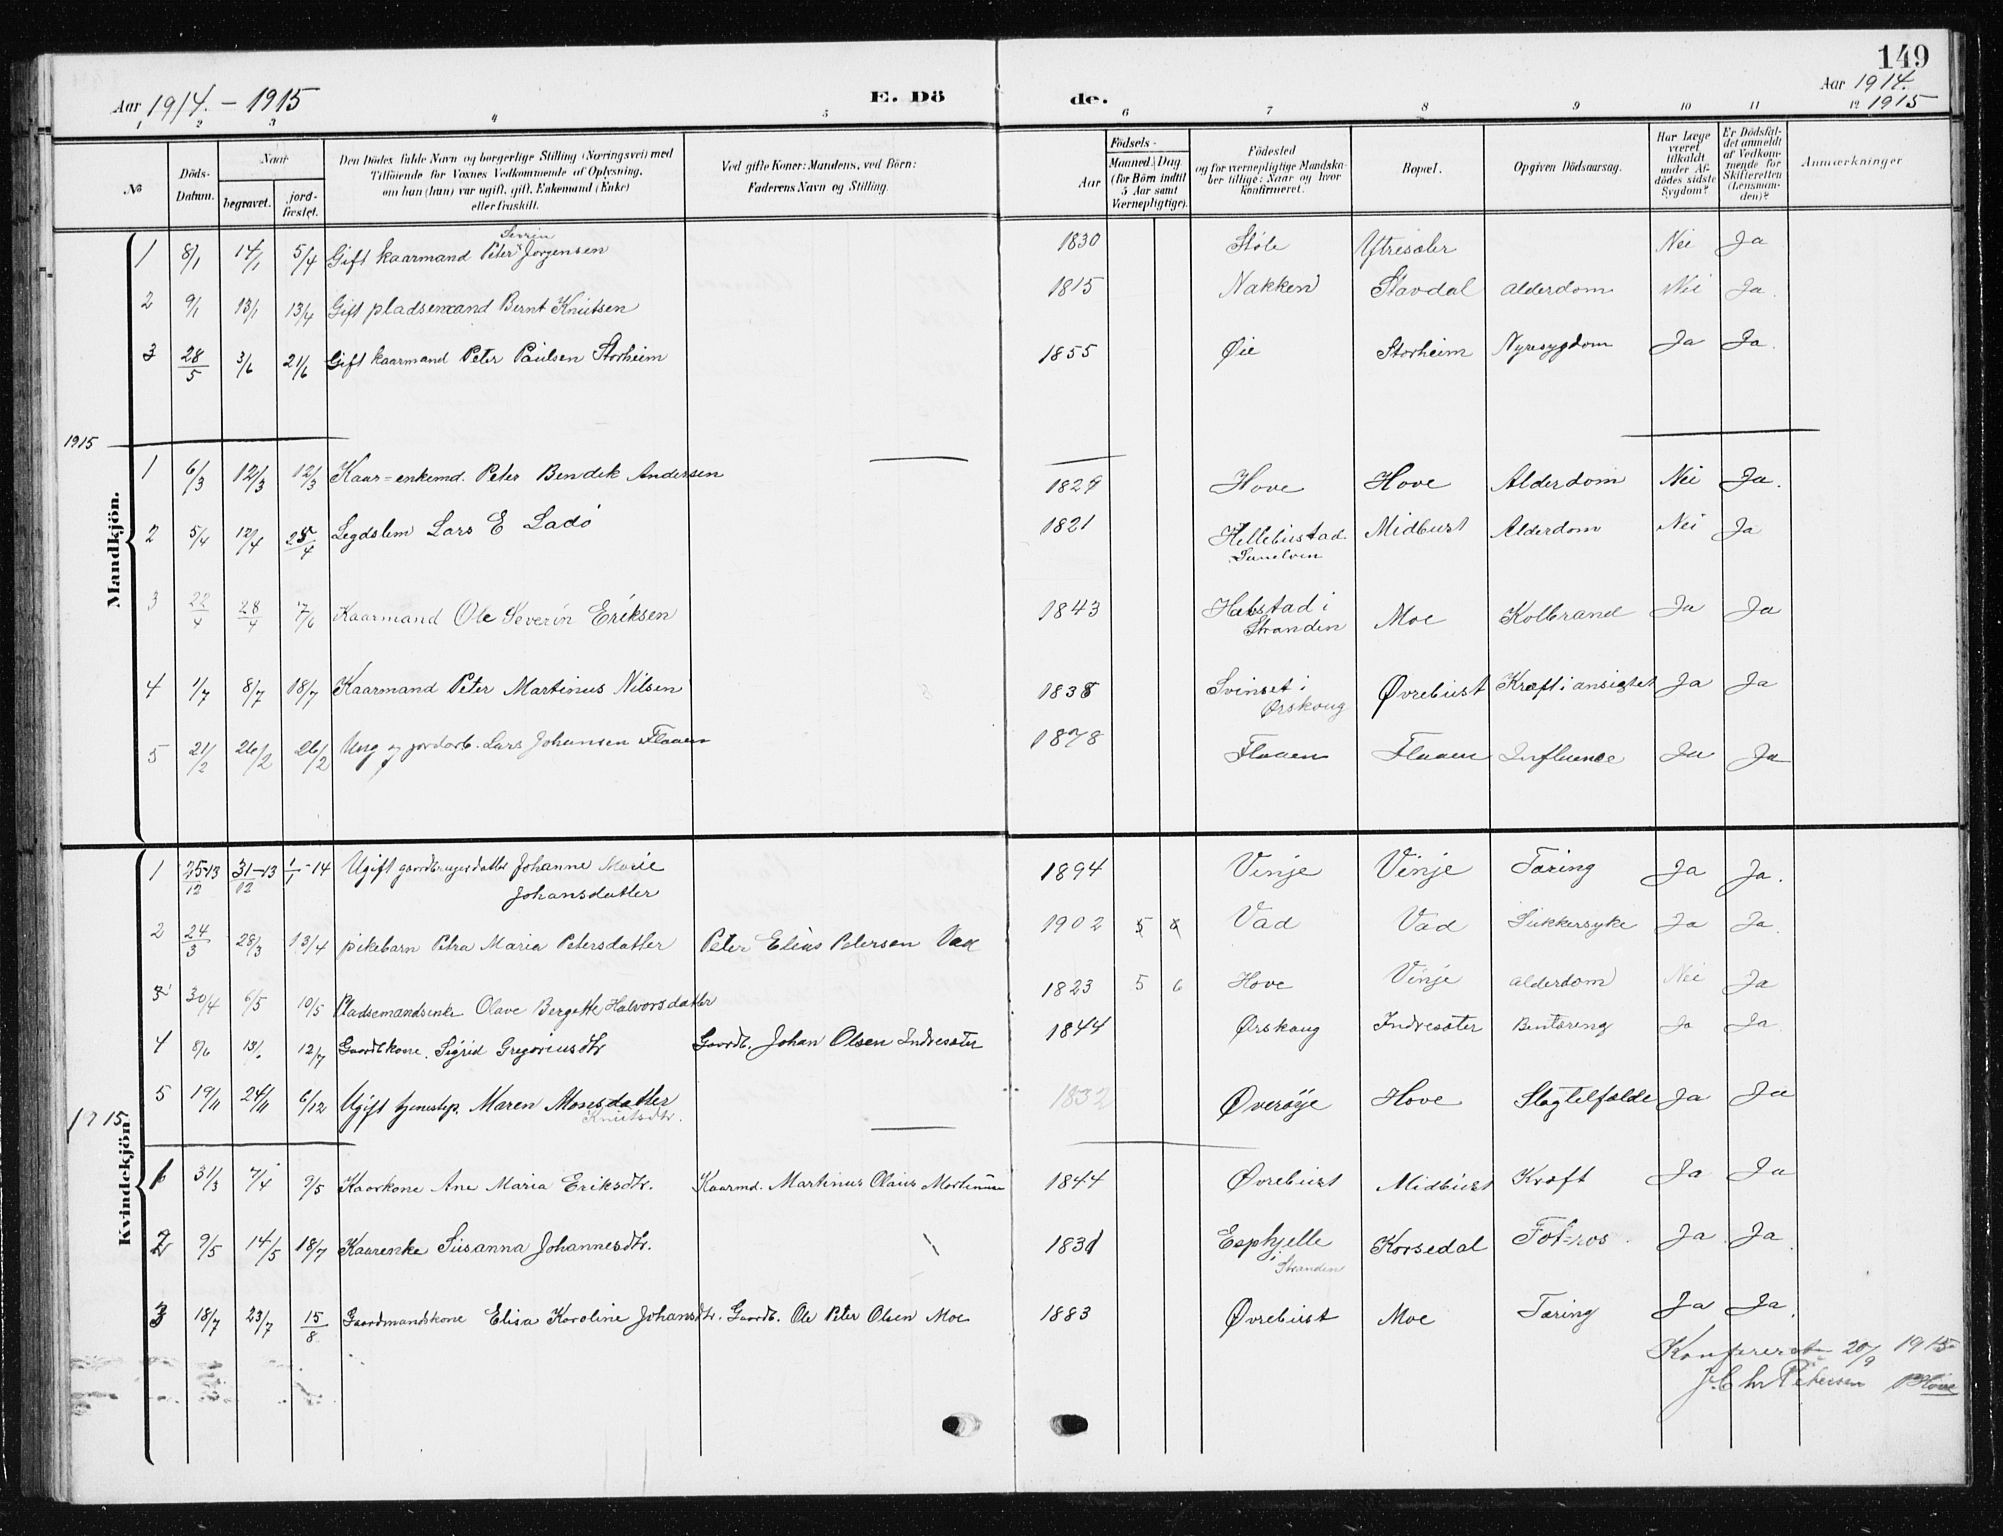 149
Aar 1914. - 1915
E. Dö
de.
Aar 1914.
1915
1 2 3 4 5 6 7 8 9 10 11 12
No
Döds-Datum.
Naar
begravet.
jord-fæstet.
Den Dödes fulde Navn og borgerlige Stilling (Næringsvei) med
Tilföiende for Voxnes Vedkommende af Oplysning,
om han (hun) var ugift, gift, Enkemand (Enke)
eller fraskilt.
Ved gifte Koner: Mandens, ved Börn:
Faderens Navn og Stilling.
Födsels-
Aar
Maaned. Dag
(for Börn indtil
5 Aar samt
Værnepligtige).
Födested
og for værnepligtige Mandska-
ber tillige: Naar og hvor
konfirmeret.
Bopæl.
Opgiven Dödsaarsag.
Har Læge
været
tilkaldt
under Af-
dödes sidste
Sygdom?
Er Dödsfal-
det anmeldt
af Vedkom-
mende for
Skifteretten
(Lensman-
den)?
Anmærkninger
Mandkjön.
Sevrin
1 8/1 14/1 5/4 Gift kaarmand Peter Jorgensen 1830 Støle Ytresæter Nei Ja
2 9/1 13/1 13/4 Gift pladsemand Bernt Knutsen 1815 Nakken Stavdal Alderdom Nei Ja.
3 28/5 3/6 21/6 Gift kaarmand Peter Paulsen Storheim 1855 Øie Storheim Nyresygdom Ja Ja.
1915
1 6/3 12/3 12/3 Kaar-enkemd. Peter Bendik Andersen 1829 Hove Hove Alderdom Nei Ja.
2 5/4 12/4 25/4 Legdslem Lars E Ladö 1821 Hellebustad Midbust Alderdom Nei Ja
Sunelven
3 22/4 28/4 7/6 Kaarmand Ole Severin Eriksen 1843 Habstad i Moe Kolbrand Ja Ja
Stranden
4 1/7 8/7 18/7 Kaarmand Peter Martinus Nilsen 1838 Svinset i Øvrebust Kræft i ansigtet Ja Ja
Ørskoug
5 21/2 26/2 26/2 Ung g jordarb. Lars Johansen Flaaen 1878 Flaaen Flaaen Influence Ja Ja
Kvindekjön.
1 25-13/12 31-13/12 1/1-14 Ugift gaardbrugerdatter Johanne Marie 1894 Vinje Vinje Tæring Ja Ja.
Johansdatter
2 24/3 28/3 13/4 pikebarn Petra Maria Petersdatter Peter Elius Petersen Vad 1902 5 6 Vad Vad Sukkersyke Ja Ja.
3 30/4 6/5 10/5 Pladsemandsenke Olave Bergette Halvorsdatter 1823 5 6 Hove Vinje Alderdom Nei Ja
4 8/6 13/6 12/7 Gaardbkone. Sigrid Gregoriusdtr Gaardb. Johan Olsen Indresæter 1844 Ørskoug Indresæter Bentæring Ja Ja.
5 19/11 24/11 6/12 Ugift tjenestep. Maren Monsdatter 1832 Øverøye Hove Slagtilfælde Ja Ja
Knutsdtr.
1915
1 31/3 7/4 9/5 Kaarkone Ane Maria Eriksdtr. Kaarmd. Martinus Olaus Martinusen 1844 Øvrebust Midbust Kræft Ja Ja
2 9/5 14/5 18/7 Kaarenke Susanna Johannesdtr. 1831 Esphjelle Korsedal Fot-ros. Ja Ja.
i Stranden
3 18/7 23/7 15/8 Gaardmandskone Elisa Karoline Johansdtr. Gaardb. Ole Peter Olsen Moe 1883 Øvrebust Moe Tæring Ja Ja.
Konfereret 20/9 1915
J. Chr Petersen